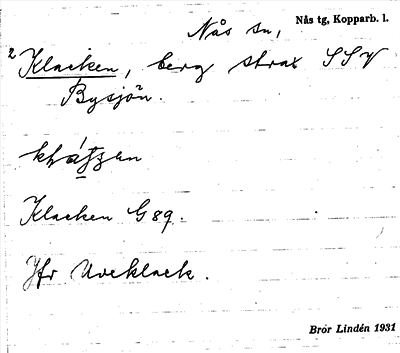 Nås sn, Nås tg, Kopparb. l.
2 Klacken, berg strax SSV
Bysjön.
Klacken G 89.
Jfr Uveklack.
Brór Lindén 1931